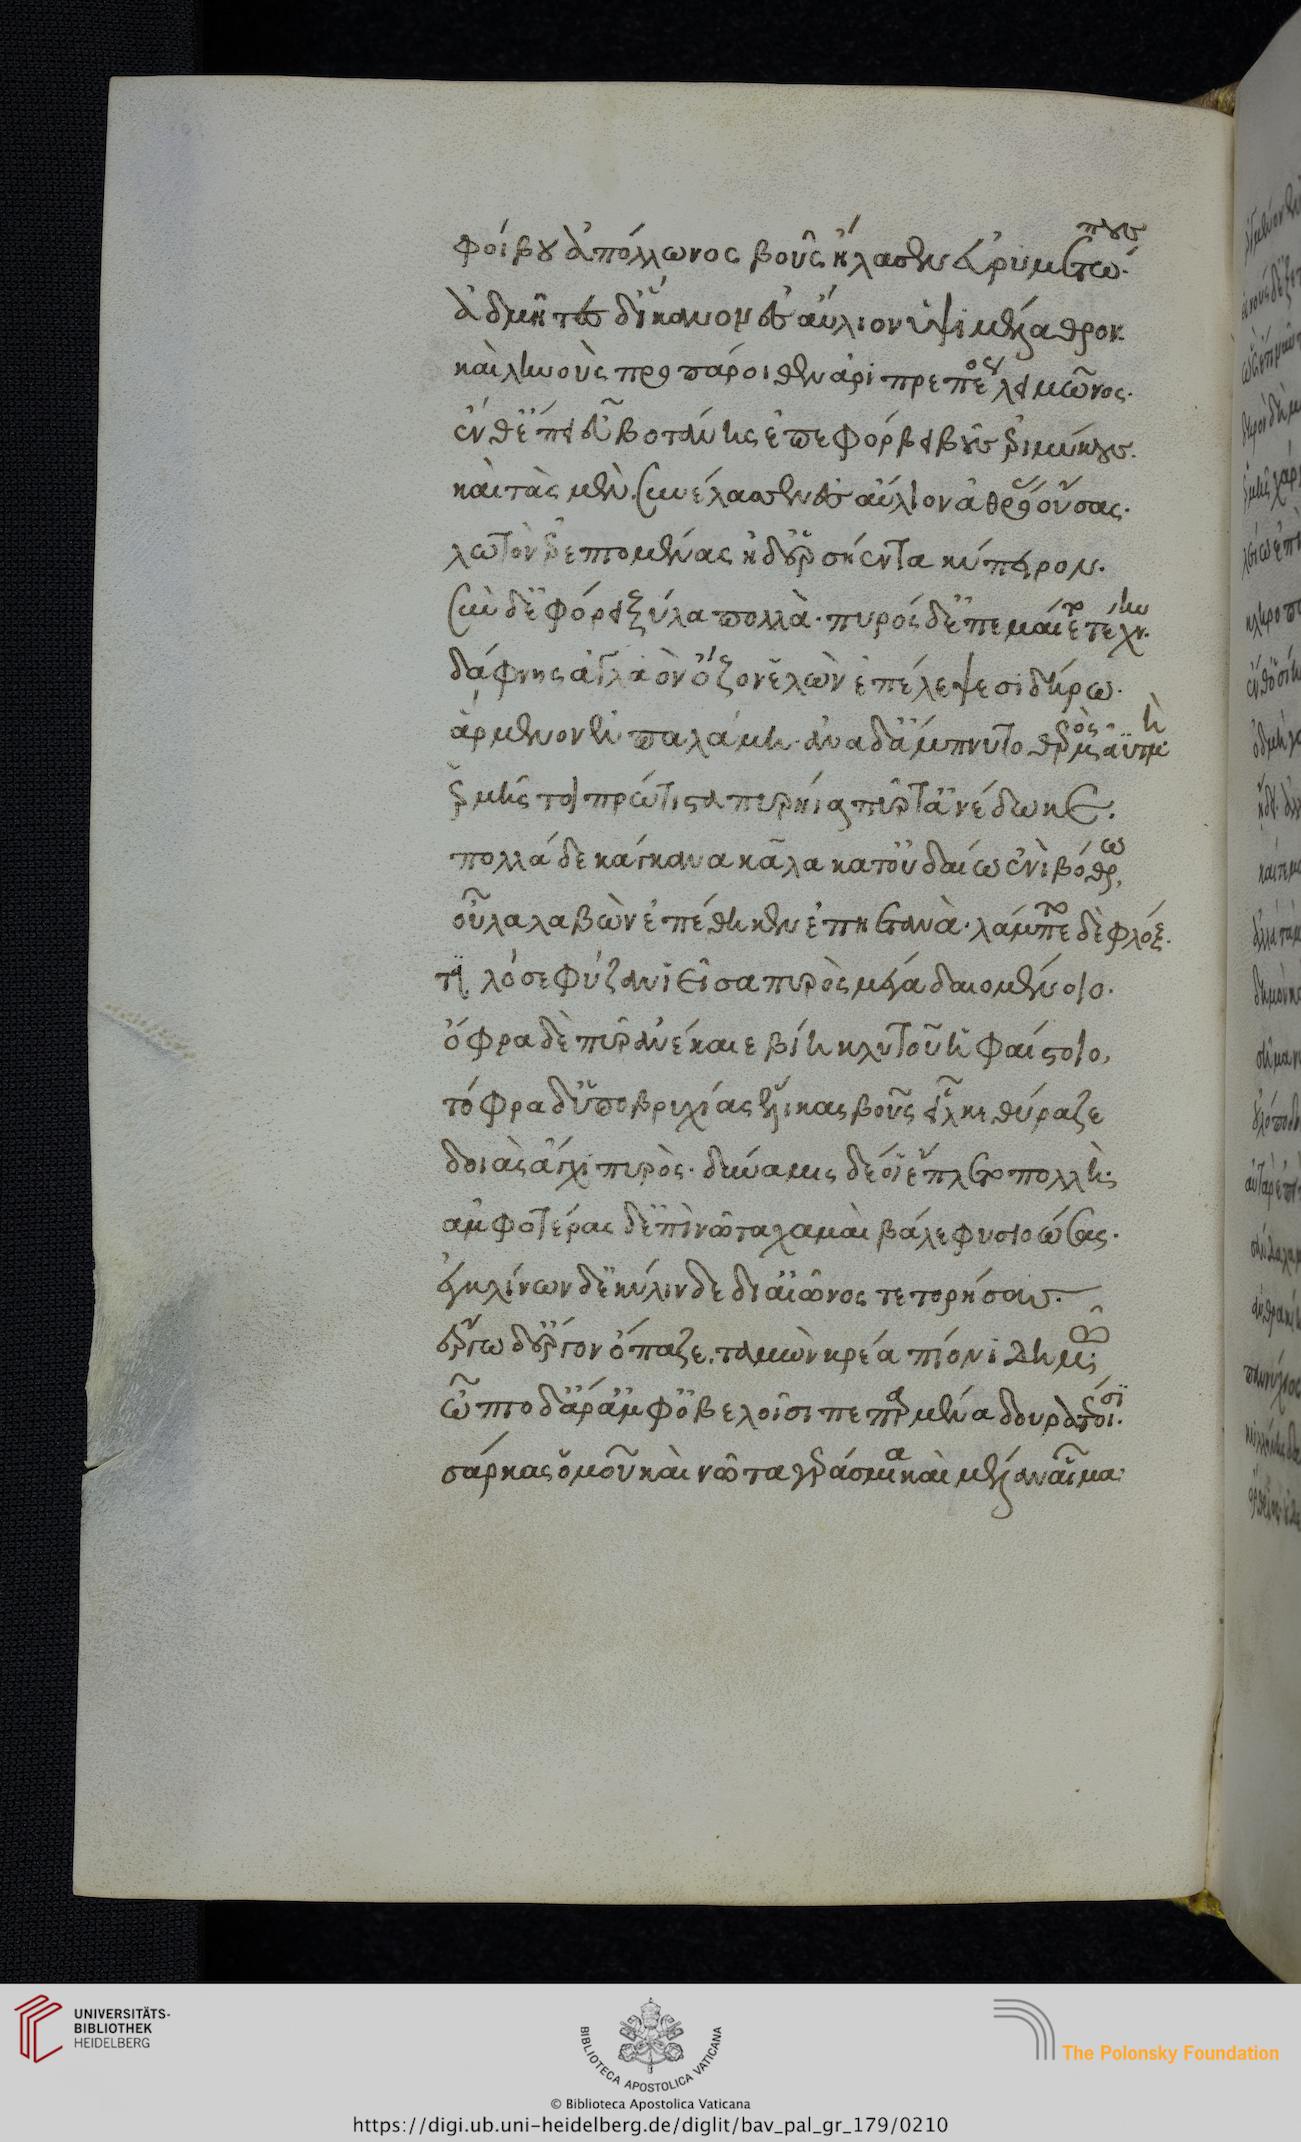 φοίβου ἀπόλλωνος βοῦς ἤλασεν εὐρυμετώπους.
ἀδμῆτες δ' ἵκανον ἐς αὔλιον ὑψιμέλαθρον.
καὶ ληνοὺς προπάροιθεν ἀριπρεπέος λειμῶνος.
ἔνθ' ἐπεὶ εὖ βοτάνης ἐπεφόρβει βοῦς ἐριμύκους.
καὶ τὰς μὲν συνέλασσεν ἐς αὔλιον ἀθρόους οὔσας.
λωτὸν ἐρεπτομένας ἠδ' ἑρσήεντα κύπειρον.
σὺν δ' ἐφόρει ξύλα πολλὰ· πυρός δ' ἐπεμαίετο τέχνην.
δάφνης ἀγλαὸν ὄζον ἑλὼν ἐπέλεψε σιδήρω.
ἄρμενον ἐν παλάμη· ἀνὰ δ' ἄμπνυτο θερμὸς ἀϋτμὴ·
ἑρμῆς τοι πρώτιστα πυρήϊα πῦρ τ' ἀνέδωκε.
πολλά δε κάγκανα κᾶλα κατουδαίω ἐνὶ βόθρω,
οὖλα λαβὼν ἐπέθηκεν ἐπηετανὰ· λάμπετο δὲ φλόξ.
τηλόσε φύζαν ἱεῖσα πυρὸς μέγα δαιομένοιο.
ὄφρα δὲ πῦρ ἀνέκαιε βίη κλυτοῦ ἡφαίστοιο,
τόφρα δ' ὑποβρυχίας ἕλικας βοῦς εἷλκε θύραζε
δοιὰς ἄγχι πυρὸς· δύναμις δέ οἱ ἔπλετο πολλὴ·
ἀμφοτέρας δ' ἐπὶ νῶτα χαμαὶ βάλε φυσιοώσας·
ἐγκλίνων δ' ἐκύλινδε δι' αἰῶνος τετορήσας.
ἔργω δ' ἔργον ὄπαζε. ταμὼν κρέα πίονι δημῶ·
ὦπτο δ' ἄρ' ἀμφ' ὀβελοῖσι πεπαρμένα δουρατέοισι.
σάρκας ὁμοῦ καὶ νῶτα γεράσμια καὶ μέλαν αἷμα·
UNIVERSITÄTS-
BIBLIOTHEK
HEIDELBERG
BIBLIOTECA APOSTOLICA VATICANA
The Polonsky Foundation
© Biblioteca Apostolica Vaticana
https://digi.ub.uni-heidelberg.de/diglit/bav_pal_gr_179/0210